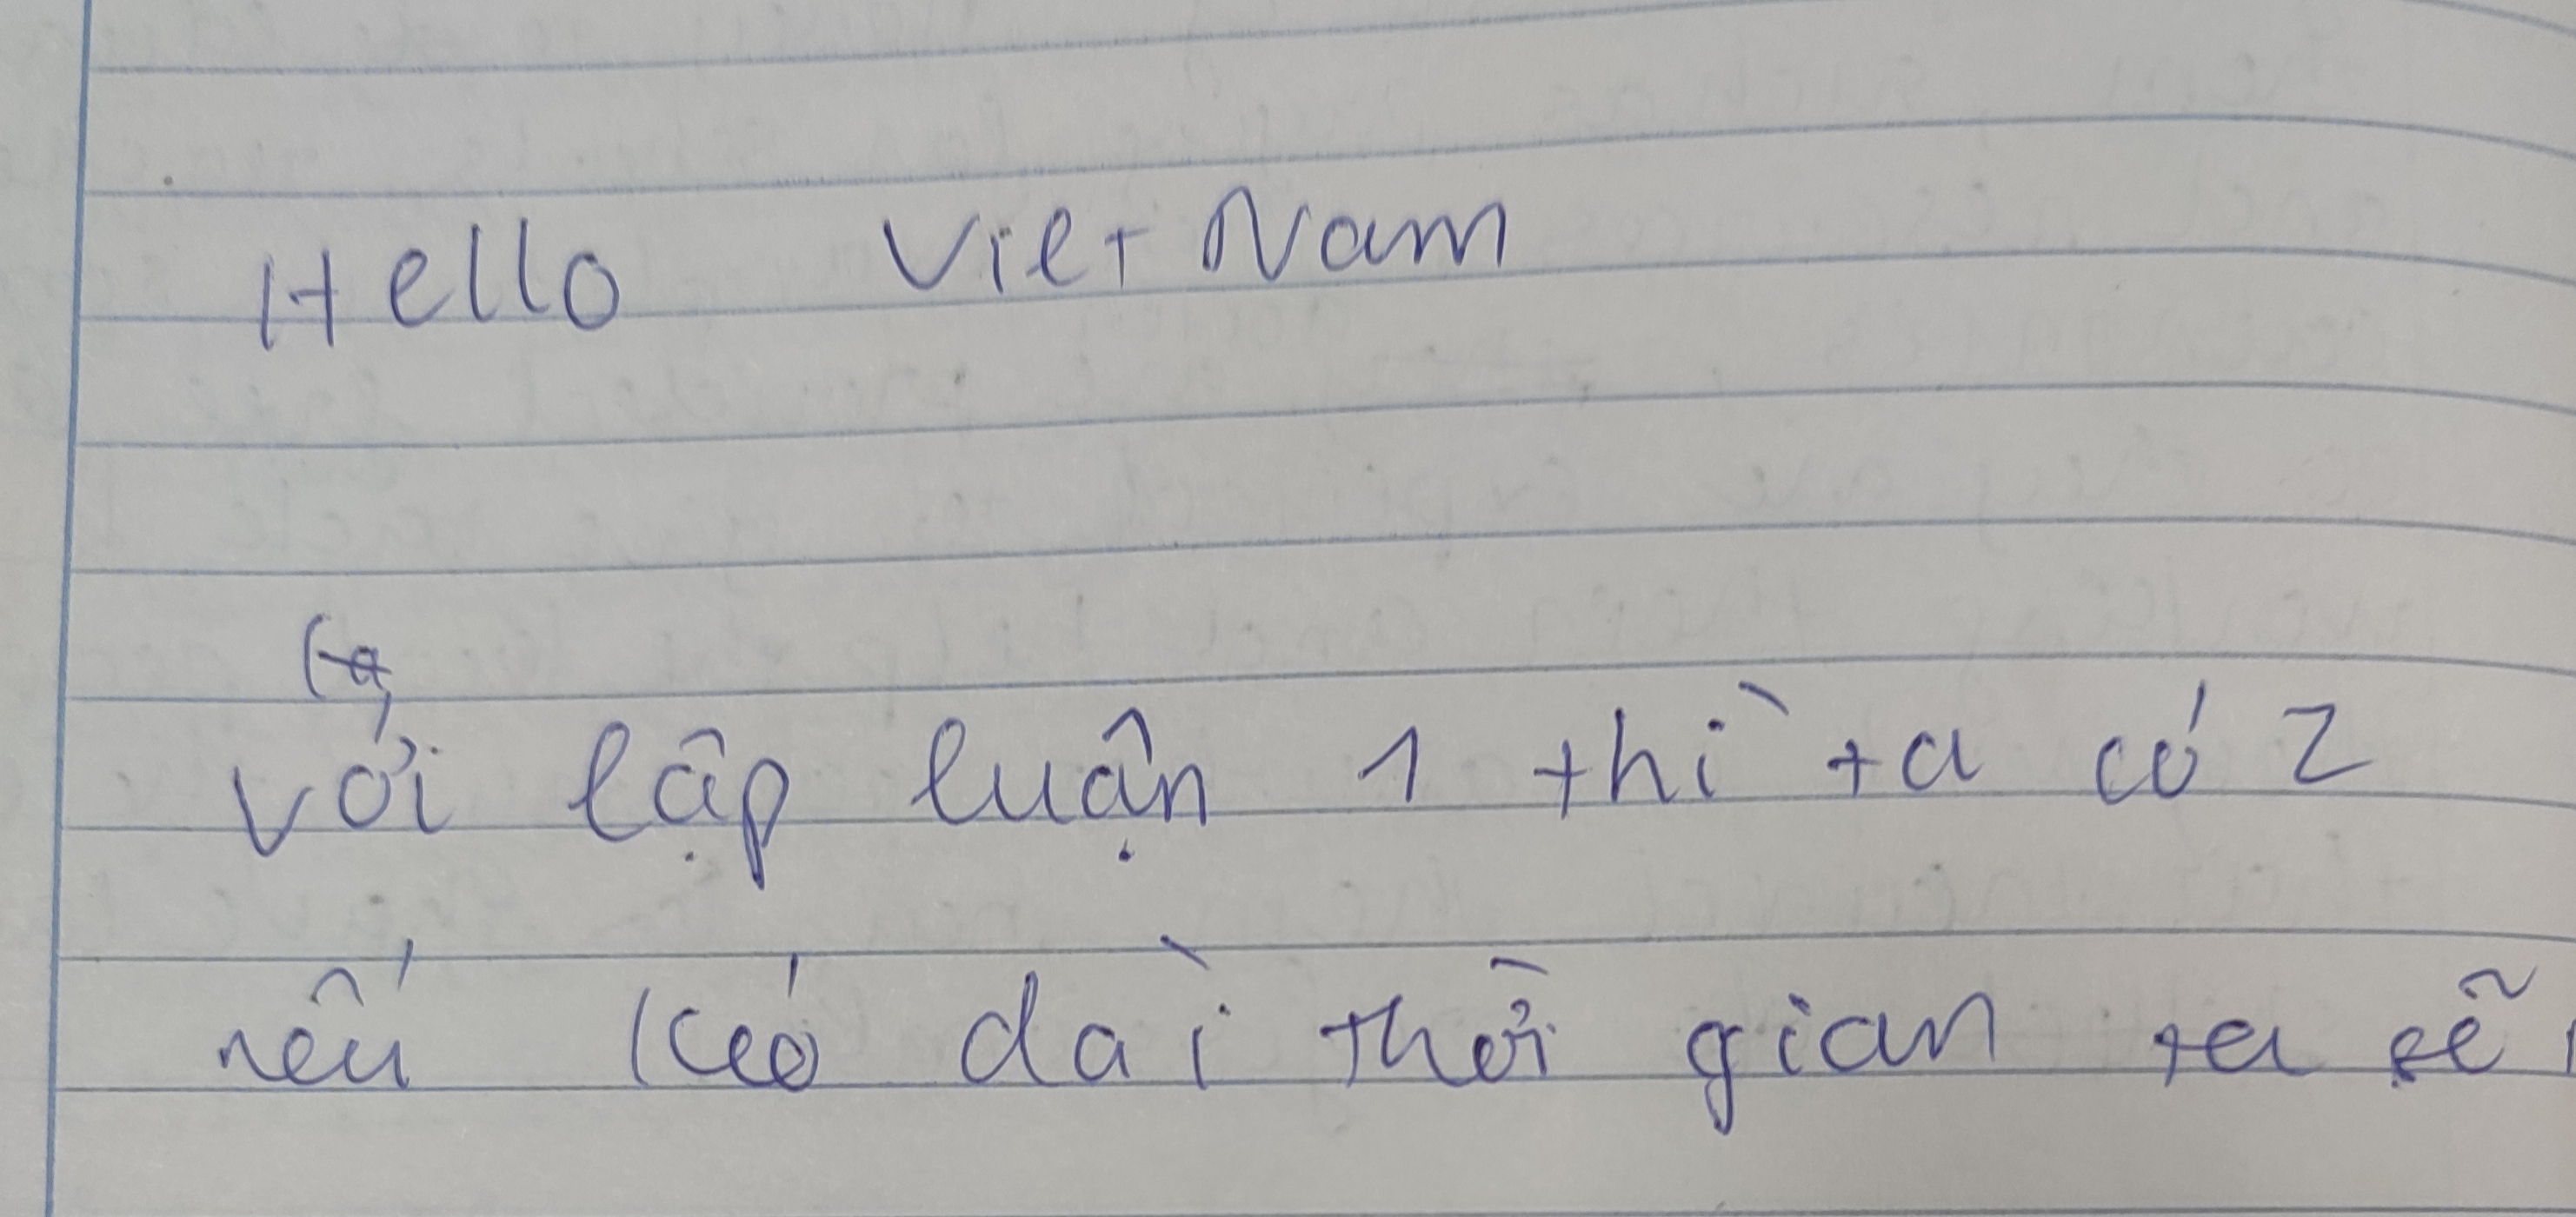 Hello Viet Nam
với lập luận 1 thì ta có 2
nếu kéo dài thời gian ta sẽ